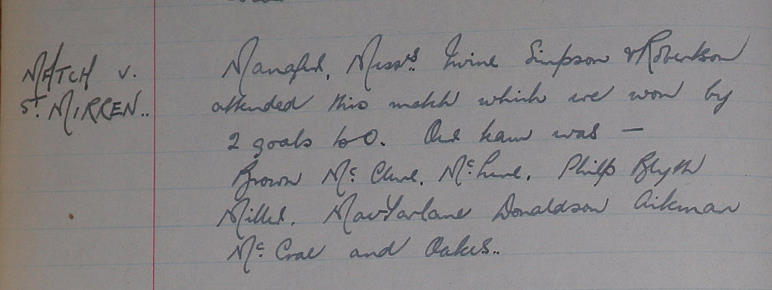 MATCH v.
ST. MIRREN..
Manager, Messrs. Irvine Simpson & Robertson
attended this match which we won by
2 goals to 0. Our team was —
Brown McClure, McLure, Philp Blyth
Miller, MacFarlane Donaldson Aikman
McCrae and Oakes..